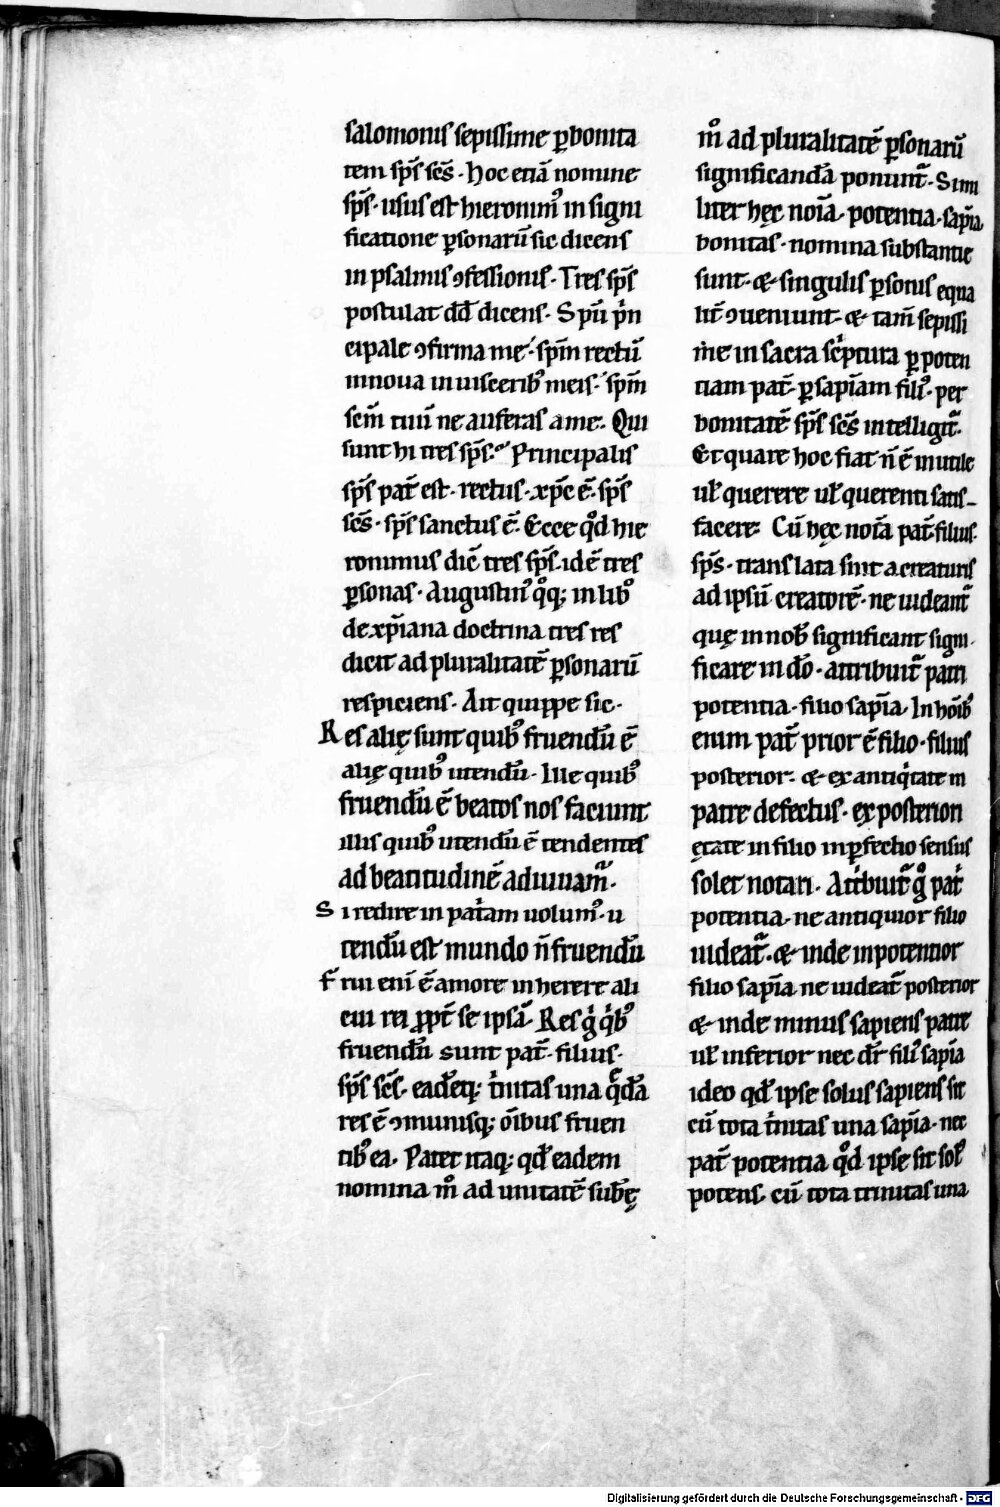 salomonis sepissime ꝑbonita
tem sp̄s sc̄s. hoc etiā nomine
sp̄s. usus est hieronim᷒ in signi
ficatione ꝑsonarū sic dicens
in psalmis ꝯfessionis. Tres sp̄s
postulat dd̄ dicens. Spū pͥn
cipale ꝯfirma me. spm̄ rectū
innoua in uisceribꝰ meis. spm̄
scm̄ tuū ne auferas a me. Qui
sunt hi tres sp̄s. Principalis
sp̄s pat̄ est. rectus. xp̄c ē. sp̄s
sc̄s. sp̄s sanctus ē. Ecce qᷘd hie
ronimus dic̄ tres sp̄s. idē tres
ꝑsonas. Augustinꝰ qͦq; in libꝰ
de xp̄iana doctrina tres res
dicit ad pluralitatē ꝑsonarū
respiciens. Ait quippe sic.
Res alię sunt quibꝰ fruendū ē
alię quibꝰ utendū. Ille quibꝰ
fruendū ē beatos nos faciunt
illis quibꝰ utendū ē tendentes
ad beatitudinē adiuuam᷑.
Si redire in patͥam uolumꝰ. u
tendū est mundo n̄ fruendū
Frui eni ē amore inherere ali
cui rei ꝓpt̄ se ipsā. Res gͥ qͥbꝰ
fruendū sunt pat̄. filius.
sp̄s sc̄s. eadēq; tͥnitas una qͣdā
res ē ꝯmunisq; oīb᷒us fruen
tibꝰ ea. Pater itaq; qd̄ eadem
nomina m̊ ad unitatē subę
m̊ ad pluralitatē ꝑsonarū
significandā ponunt᷑. Simi
liter hęc noīa. potentia. sapīa
bonitas. nomina substantie
sunt. & singulis ꝑsonis equa
lit̄ ꝯueniunt. & tam̄ sepissi
me in sacra scͥptura ꝑ poten
tiam pat̄. ꝑ sapīam filiꝰ. per
bonitatē sp̄s sc̄s intelligit᷑.
Et quare hoc fiat n̄ ē inutile
ul̄ querere ul̄ querenti satis
facere. Cū hęc noīa pat̄. filius.
sp̄s. translata sint a creaturis
ad ipsū creatorē. ne uideant᷑
quę in nob̄ significant signi
ficare in dō. attribuit᷑ patri
potentia. filio sapīa. In hoīb᷒
enim pat̄ prior ē filio. filius
posterior. & ex antiqͥtate in
patre defectus. ex posteriori
ętate in filio inꝑfectio sensus
solet notari. Attͥbuit᷑ gͦ patͥ
potentia. ne antiquior filio
uideat᷑. & inde inpotentior
filio sapīa ne uideat᷑ posterior
& inde minus sapiens patre
ul̄ inferior nec dr̄ filiꝰ sapīa
ideo qd̄ ipse solus sapiens sit
cū tota tͥnitas una sapīa. nec
pat̄ potentia qᷘd ipse sit solꝰ
potens. cū tota trinitas una
Digitalisierung gefördert durch die Deutsche Forschungsgemeinschaft - DFG